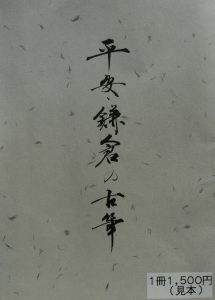 平安・鎌倉の古筆
1冊1,500円
(見本)